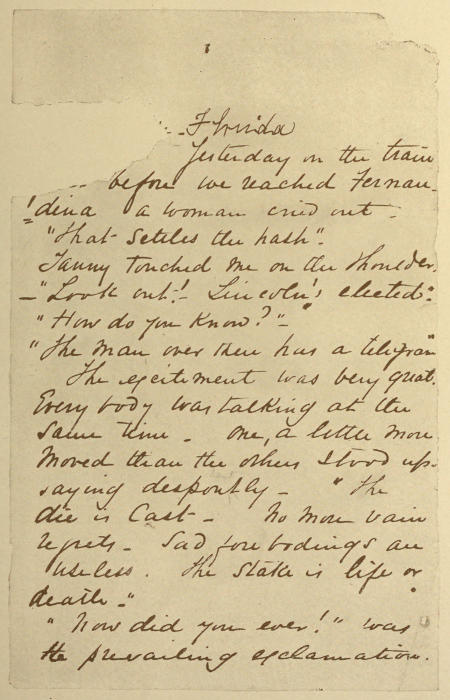 Florida
Yesterday on the train
before we reached Fernan-
dina a woman cried out -
"That settles the hash".
Tanny touched me on the shoulder.
- "Look out! - Lincoln's elected".
"How do you know?" -
"The man over there has a telegram"
The excitement was very great.
Every body was talking at the
same time - One, a little more
moved than the others stood up -
saying despontly - "The
die is cast - No more vain
regrets - Sad forebodings are
useless. The stake is life or
death -"
"Now did you ever!" was
the prevailing exclamation.